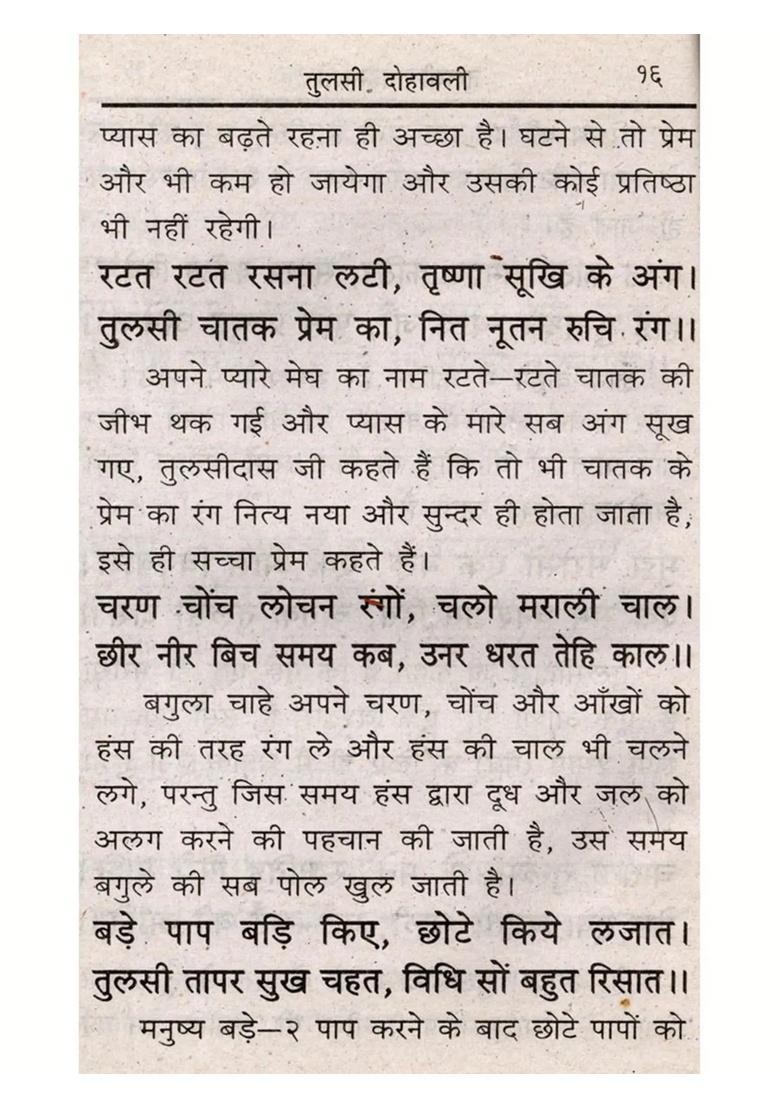 तुलसी दोहावली १६
प्यास का बढ़ते रहना ही अच्छा है। घटने से तो प्रेम
और भी कम हो जायेगा और उसकी कोई प्रतिष्ठा
भी नहीं रहेगी।
रटत रटत रसना लटी, तृष्णा सूखि के अंग।
तुलसी चातक प्रेम का, नित नूतन रुचि रंग।।
अपने प्यारे मेघ का नाम रटते–रटते चातक की
जीभ थक गई और प्यास के मारे सब अंग सूख
गए, तुलसीदास जी कहते हैं कि तो भी चातक के
प्रेम का रंग नित्य नया और सुन्दर ही होता जाता है,
इसे ही सच्चा प्रेम कहते हैं।
चरण चोंच लोचन रंगों, चलो मराली चाल।
छीर नीर बिच समय कब, उनर धरत तेहि काल।।
बगुला चाहे अपने चरण, चोंच और आँखों को
हंस की तरह रंग ले और हंस की चाल भी चलने
लगे, परन्तु जिस समय हंस द्वारा दूध और जल को
अलग करने की पहचान की जाती है, उस समय
बगुले की सब पोल खुल जाती है।
बड़े पाप बड़ि किए, छोटे किये लजात।
तुलसी तापर सुख चहत, विधि सों बहुत रिसात।।
मनुष्य बड़े–२ पाप करने के बाद छोटे पापों को